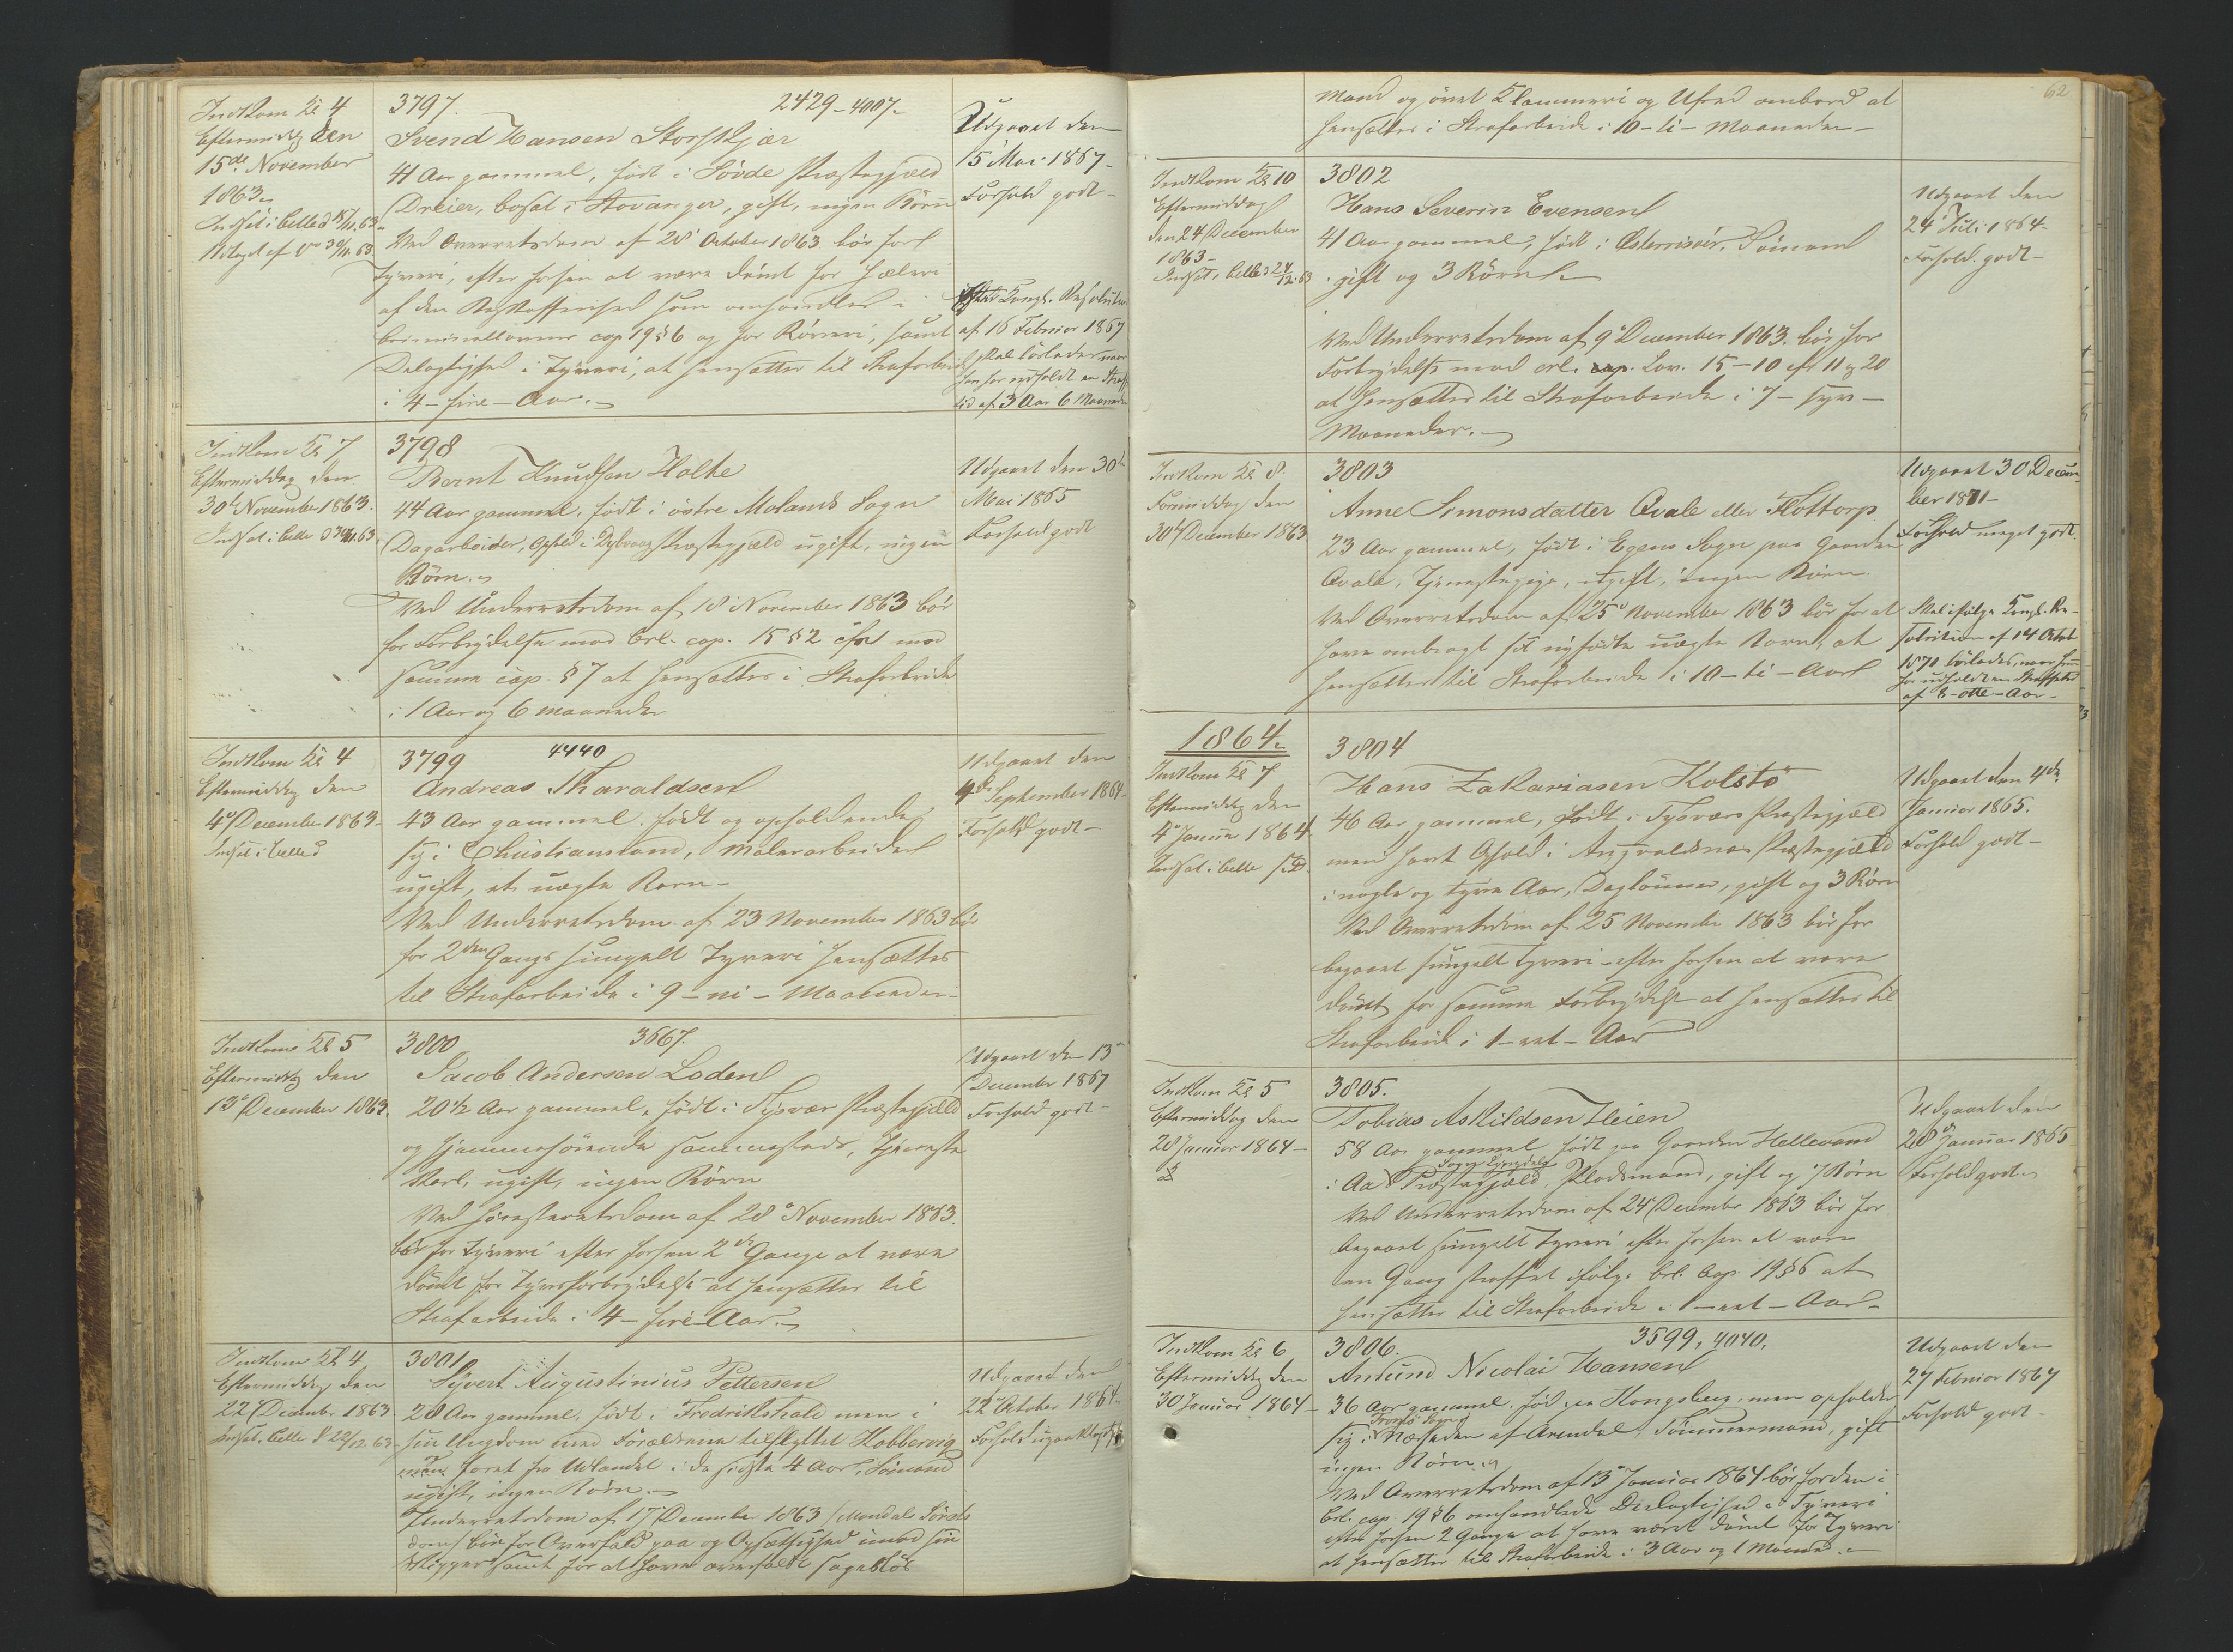 Indkom Kl 4
Eftermiddag den
15de November
1863
Indsat i Celle d 15/11.63
Udtaget af do 30/11.63
3797. 2429 - 4007
Svend Hansen Storskjær
41 Aar gammel, født i Søvde Præstegjæld
Dreier, bosat i Stavanger, gift, ingen Børn
Ved Overretsdom af 28 October 1863 bør for
Tyveri, efter forhen at være dømt for Hæleri
af den Beskaffenhed som omhandles i
Criminallovens cap 19 § 6 og for Røveri, samt
Delagtighed i Tyveri, at hensættes til Strafarbeide
i 4 - fire - Aar.
Udgaaet den
15 Mai 1867
Forhold godt
Kongl. Resolution
af 16 Februar 1867
skal løslades naar
han har udholdt en Straffe
tid af 3 Aar 6 Maaneder
Indkom Kl 7
Eftermiddag den
30te November 1863.
Indsat i Celle d 30/11.63
3798
Bernt Knudsen Holte
44 Aar gammel, født i østre Molands Sogn
Dagarbeider, Ophold i Dybvaag Præstegjæld ugift, ingen
Børn.
Ved Underretsdom af 18 November 1863 bør
for Forbrydelse mod Crl. cap. 15 § 2 cfr med
samme cap. § 7 at hensættes i Strafarbeide
i 1 Aar og 6 maaneder
Udgaaet den 30te
Mai 1865
Forhold godt
Indkom Kl 4
Eftermiddag den
4de December 1863
Indsat i Celle d
3799 4440
Andreas Tharaldsen
43 Aar gammel, født og opholdende
sig i Christiansand, Malerarbeider
ugift, et uægte Barn
Ved Underretsdom af 23 November 1863 bør
for 2den Gangs simpelt Tyveri hensættes
til Strafarbeide i 9 - ni - Maaneder
Udgaaet den
4de September 1864
Forhold godt
Indkom Kl 5
Eftermiddag den
13de December 1863.
3800 3667.
Jacob Andersen Loden
20 1/2 Aar gammel, født i Tysvær Præstegjæld
og hjemmehørende sammesteds, Tjeneste
Karl, ugift, ingen Børn
Ved Høiesteretsdom af 28de November 1863.
bør for Tyveri efter forhen 2de Gange at være
dømt for Tyvsforbrydelse at hensættes til
Strafarbeide i 4 - fire - Aar.
Udgaaet den 13de
December 1867
Forhold godt
Indkom Kl 4
Eftermiddag den
22 December 1863
Indsat i Celle d 22/12 63
3801
Syvert Augustinius Pettersen
28 Aar gammel, født i Fredrikshald men i
sin Ungdom med Forældrene tilflyttet Kobbervig
men faret fra Udlandet i de sidste 4 Aar, Sømand
ugift, ingen Børn.
Underretsdom af 17 December 1863 (Mandals Sørets
dom) bør for Overfald paa og Opsætsighed imod sin
Skipper samt for at have overfaldt sagesløs
Udgaaet den
22de October 1864
Forhold upaaklageligt
62
Mand og øvet Klammeri og Ufred ombord at
hensættes i Strafarbeide i 10 - ti - Maaneder
Indkom Kl 10
Eftermiddag
den 24 December
1863
Indsat i Celle d 24/12.63
3802
Hans Severin Evensen
41 Aar gammel, født i Østerrisøer, Sømand
gift og 3 Børn
Ved Underretsdom af 9de December 1863. bør for
Forbrydelse mod crl. cap. Lov. 15 - 10 cfr 11 og 20
at hensættes til Strafarbeide i 7 - syv -
Maaneder.
Udgaaet den
24 Juli 1864
Forhold godt
Indkom Kl 8.
Formiddag den
30te December 1863
3803
Anne Simonsdatter Qvale eller Flottorp
23 Aar gammel, født i Egens Sogn paa Gaarden
Qvale, Tjenestepige, ugift, ingen Børn.
Ved Overretsdom af 25de November 1863 bør for at
have ombragt sit nyfødte uægte Barn, at
hensættes til Strafarbeide i 10 - ti - Aar
Udgaaet 30 Decem
ber 1871
Forhold meget godt.
Skal ifølge Kongl. Re-
solution af 14 Octob
1871 løslades, naar hun
har udholdt en Straffetid
af 8 - otte - Aar
1864
Indkom Kl 7
Eftermiddag den
4de Januar 1864
Indsat i Celle s. D.
3804
Hans Zakariasen Kolstø
46 Aar gammel, født i Tysvær Præstegjæld
men havt Ophold i Augvaldsnæs Præstegjæld
i nogle og tyve Aar, Daglønner, gift og 3 Børn
Ved Overretsdom af 25 November 1863 bør for
begaaet simpelt Tyveri - efter forhen at være
dømt for samme Forbrydelse at hensættes til
Strafarbeide i 1 - eet - Aar
Udgaaet den 4de
Januar 1865.
Forhold godt
Indkom Kl 5
Eftermiddag den
28 Januar 1864
3805.
Tobias Askildsen Heien
58 Aar gammel født paa Gaarden Hellevand
Sogn Lyngdals
i Aa Præstegjæld, Plodsmand, gift og 7 Børn
Ved Underretsdom af 24 December 1863 bør for
begaaet simpelt Tyveri efter forhen at være
en Gang straffet ifølge Crl. Cap. 19 § 6 at
hensættes til Strafarbeide i 1 - eet - Aar
Udgaaet den
28de Januar 1865
Forhold godt
Indkom Kl 6
Eftermiddag den
30 Januar 1864
3806. 3599, 4040.
Anund Nicolai Hansen
36 Aar gammel, født paa Kongsberg, men opholder
Tromø Sogn
sig i Nærheden af Arendal, Tømmermand, gift
ingen Børn.
Ved Overretsdom af 13de Januar 1864 bør for den i
Crl. cap. 19 § 6 omhandlede Delagtighed i Tyveri
efter forhen 2 Gange at have været dømt for Tyveri
at hensættes til Strafarbeide i 3 Aar og 1 Maaned.
Udgaaet den
27 Februar 1867
Forhold godt